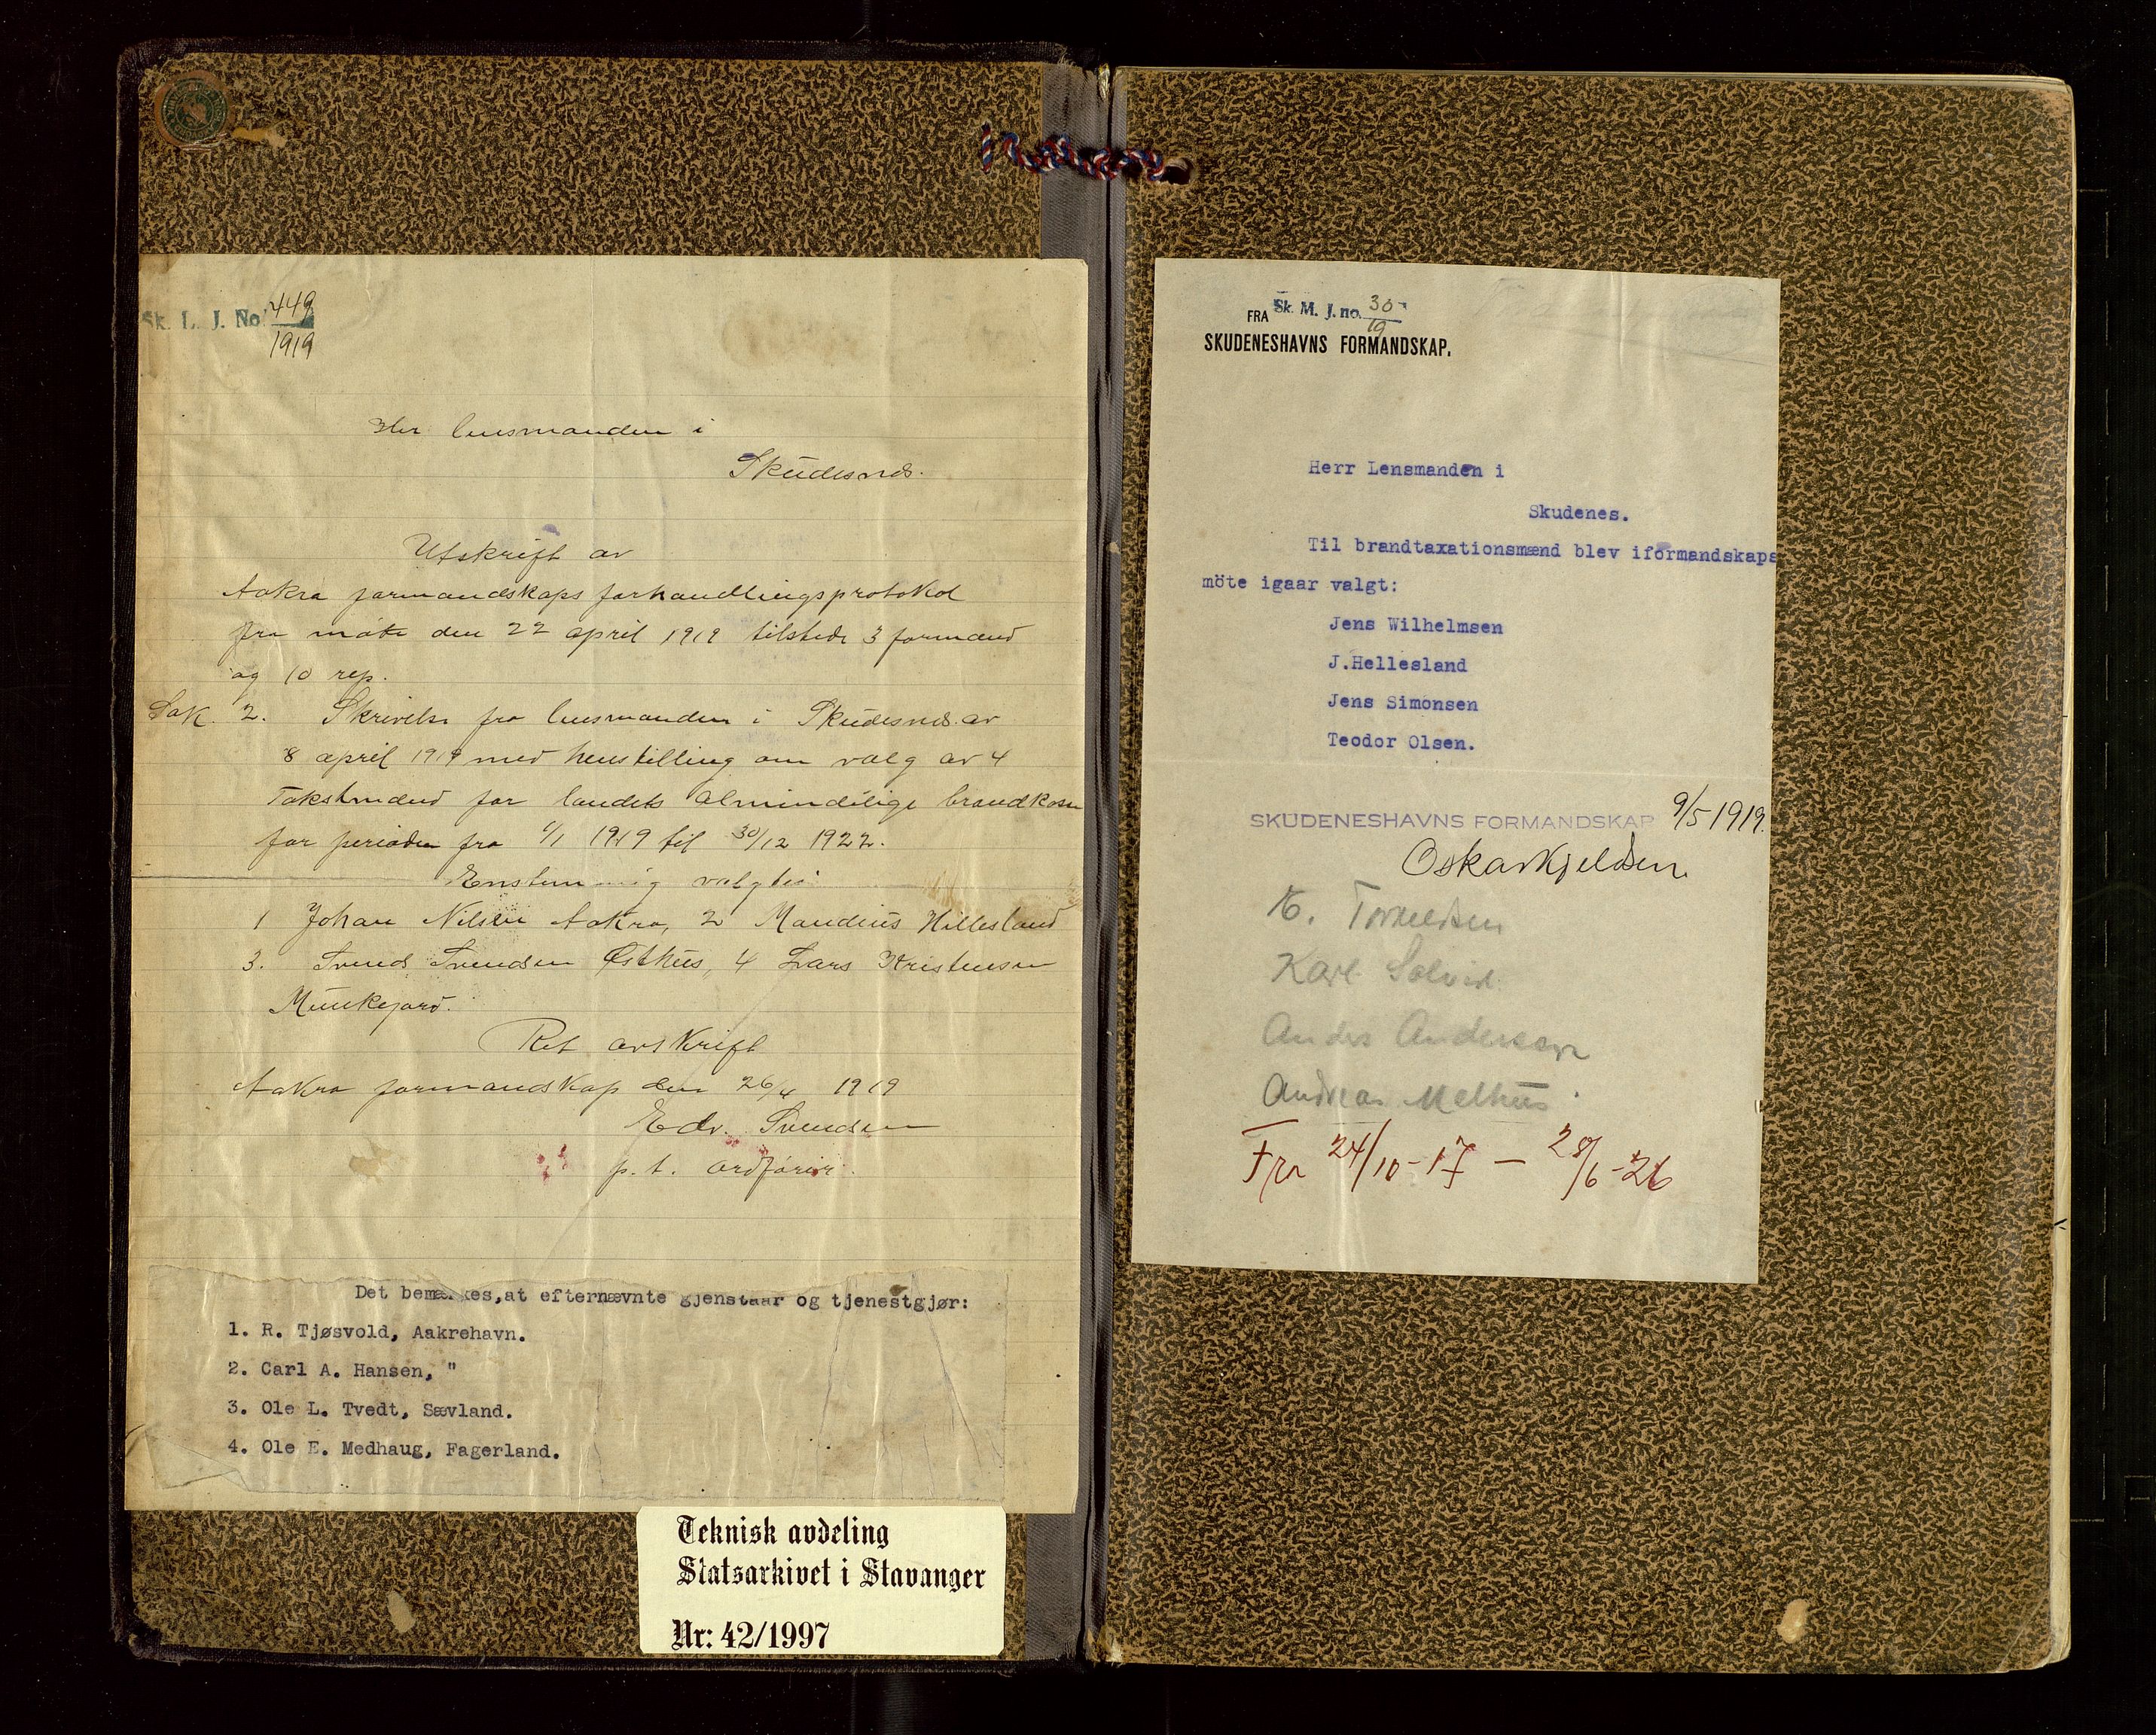 Sk. L. J. No. 449
1919
Herr lensmanden i
Skudesnes.
Utskrift av
Aakra formandskaps forhandlingsprotokol
fra møte den 22 april 1919 tilstede 3 formænd
og 10 rep.
Sak. 2. Skrivelse fra lensmanden i Skudesnes av
8 april 1919 med henstilling om valg av 4
Takstmænd for landets almindelige brandkasse
for perioden fra 1/1 1919 til 30/12 1922.
Enstemmig valgtes
1 Johan Nilsen Aakra, 2 Mandius Hillesland
3. Svend Svendsen Østhus, 4 Lars Kristensen
Munkejord.
Ret avskrift
Aakra formandskap den 26/4 1919
Edv. Svendsen
p.t. ordfører.
Det bemærkes,at efternævnte gjenstaar og tjenestgjør:
1. R. Tjøsvold, Aakrehavn.
2. Carl A. Hansen, "
3. Ole L. Tvedt, Sævland.
4. Ole E. Medhaug, Fagerland.
Teknisk avdeling
Statsarkivet i Stavanger
Nr: 42/1997
FRA Sk. M. J. no. 30
19
SKUDENESHAVNS FORMANDSKAP.
Herr Lensmanden i
Skudenes.
Til brandtaxationsmænd blev iformandskaps
möte igaar valgt:
Jens Wilhelmsen
J.Hellesland
Jens Simonsen
Teodor Olsen.
SKUDENESHAVNS FORMANDSKAP 9/5 1919.
Oskar Kjeldsen.
Karl
Andrs Anderssen
Andreas Melhus
Fra 24/10-17 — 28/6-26